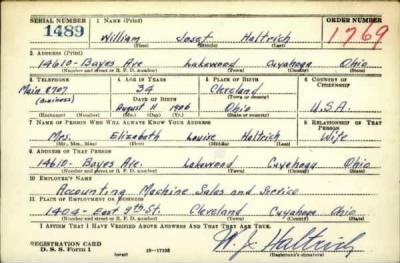 SERIAL NUMBER 1 NAME (Print) ORDER NUMBER
1489 William Josef Haltrich 1769
(First) (Middle) (Last)
2 ADDRESS (Print)
14610- Bayes Ave Lakewood Cuyahoga Ohio
(Number and street or R. F. D. number) (Town) (County) (State)
3 TELEPHONE 4 AGE IN YEARS 5 PLACE OF BIRTH 6 COUNTRY OF CITIZENSHIP
Main 8707 34 Cleveland
(Town or county)
(Business) DATE OF BIRTH
August 11 1906 Ohio U.S.A.
(Exchange) (Number) (Mo.) (Day) (Yr.) (State or country)
7 NAME OF PERSON WHO WILL ALWAYS KNOW YOUR ADDRESS 8 RELATIONSHIP OF THAT PERSON
Mrs. Elizabeth Louise Haltrich Wife
(Mr., Mrs., Miss) (First) (Middle) (Last)
9 ADDRESS OF THAT PERSON
14610- Bayes Ave. Lakewood Cuyahoga Ohio
(Number and street or R. F. D. number) (Town) (County) (State)
10 EMPLOYER'S NAME
Accounting Machine Sales and Service
11 PLACE OF EMPLOYMENT OR BUSINESS
1404- East 9th St. Cleveland Cuyahoga Ohio
(Number and street or R. F. D. number) (Town) (County) (State)
I AFFIRM THAT I HAVE VERIFIED ABOVE ANSWERS AND THAT THEY ARE TRUE.
REGISTRATION CARD
D. S. S. Form 1 (over) W. J. Haltrich
(Registrant's signature)